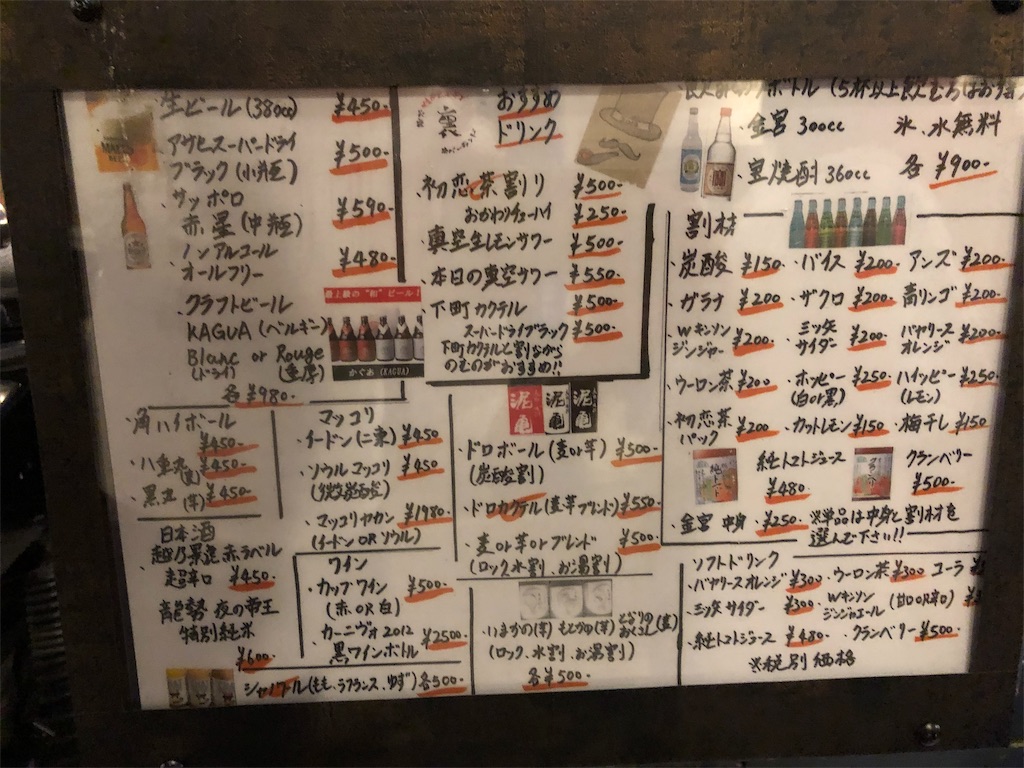 生ビール(380cc) ¥450-
アサヒスーパードライ
ブラック(小瓶) ¥500-
サッポロ
赤星(中瓶) ¥590-
ノンアルコール
オールフリー ¥480-
クラフトビール
KAGUA(ベルギー)
Blanc or Rouge
(ドライ)
各¥980-
最上級の"和"ビール!
かぐあ (KAGUA)
角ハイボール
¥450-
八重丸(麦) ¥450-
(芋) ¥450-
日本酒
越乃景虎 赤ラベル
超辛口 ¥450-
龍勢 夜の帝王
特別純米
¥600-
マッコリ
イードン(二東) ¥450
ソウルマッコリ ¥450
(微炭酸)
マッコリヤカン ¥1980-
(イードン OR ソウル)
ワイン
・カップワイン ¥500-
(赤 OR 白)
・カーニヴォ2012
黒ワインボトル ¥2500-
(もも、ラフランス、ゆず) 各500-
裏
おすすめ
ドリンク
・初恋茶割り ¥500-
おかわりチューハイ ¥250-
・真空生レモンサワー ¥500-
・本日の真空サワー ¥550-
・下町カクテル ¥500-
スーパードライブラック ¥500-
下町カクテルと割りながら
のむのがおすすめ!!
泥亀 泥亀 泥亀
・ドロボール(麦or芋) ¥500-
(炭酸割)
・ドロカクテル(麦芋ブレンド) ¥550-
・麦or芋orブレンド ¥500-
(ロック、水割、お湯割)
・いまかの(芋) もとかの(芋) となりのおくさん(麦)
(ロック、水割、お湯割)
各¥500-
ボトル(5杯以上飲むならお得)
・金宮 300cc 氷、水無料
・宝焼酎 360cc 各¥900-
割材
・炭酸 ¥150- ・バイス ¥200- アンズ ¥200-
・ガラナ ¥200 ・ザクロ ¥200- 青リンゴ ¥200-
・Wキンソン
ジンジャー ¥200-
三ツ矢
サイダー ¥200-
バヤリース
オレンジ ¥200-
・ウーロン茶 ¥200 ・ホッピー ¥250 ・ハイッピー ¥250-
(白or黒) (レモン)
・初恋茶
パック ¥200- ・カットレモン ¥150 ・梅干し ¥150
純トマトジュース ¥480-
クランベリー ¥500-
・金宮 中身 ¥250- ※単品は中身と割材を
選んで下さい!!
ソフトドリンク
・バヤリースオレンジ ¥300- ・ウーロン茶 ¥300 コーラ
・三ツ矢サイダー ¥300- Wキンソン
ジンジャエール (甘口OR辛口)
・純トマトジュース ¥480- ・クランベリー ¥500-
※税別価格